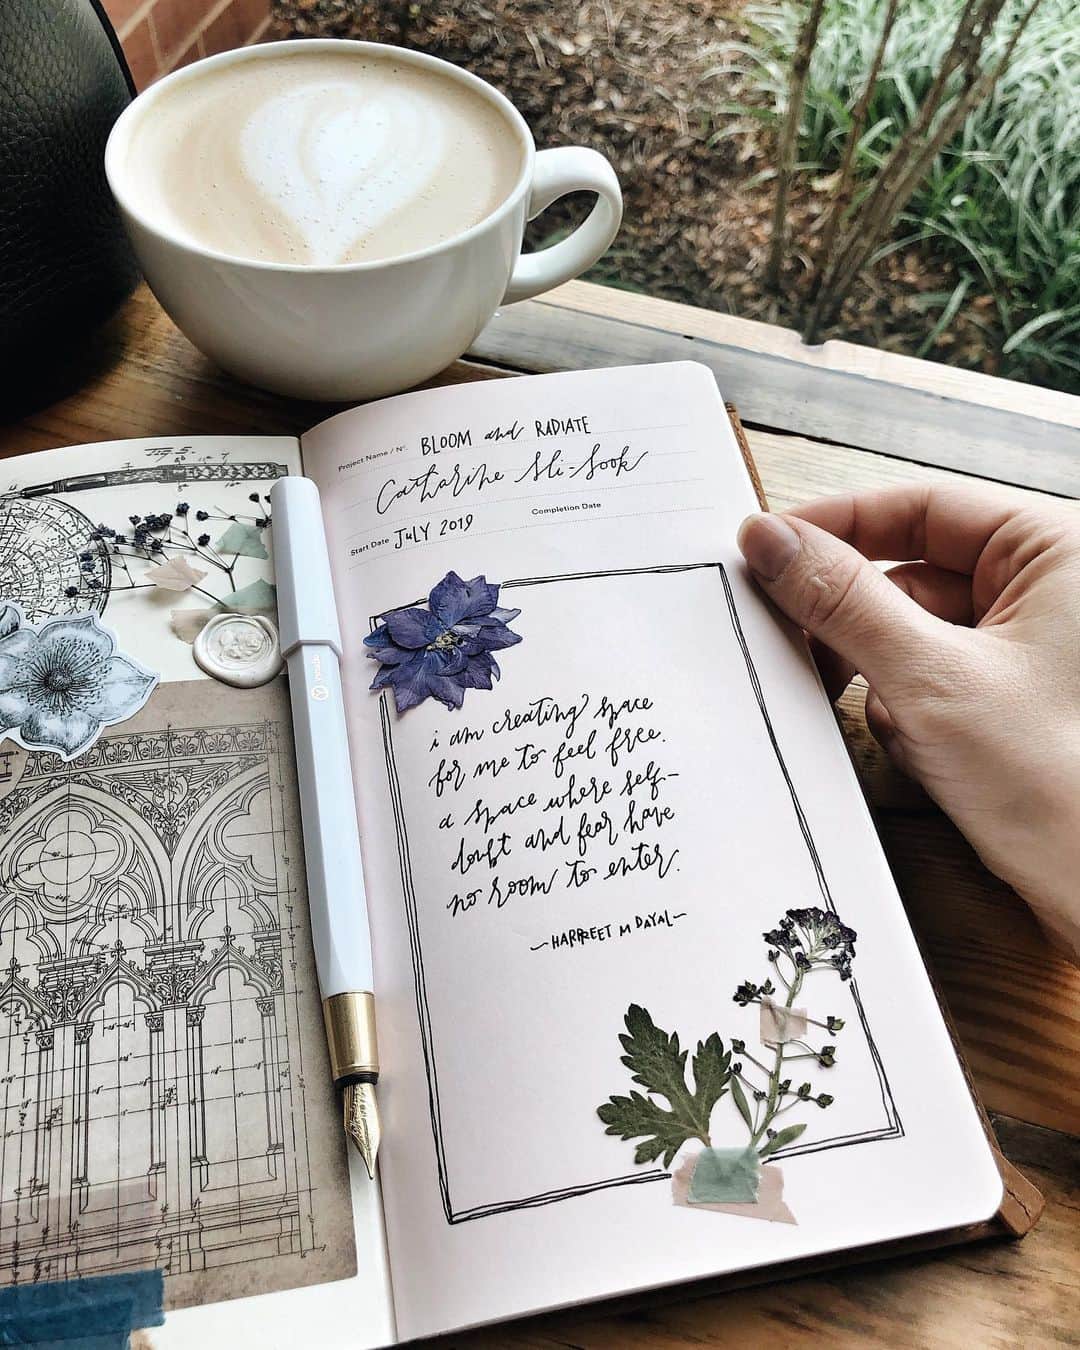 Project Name / Nº. BLOOM and RADIATE
Catharine Mi-Sook
Start Date JULY 2019 Completion Date
i am creating space
for me to feel free.
a space where self-
doubt and fear have
no room to enter.
~HARPREET M DAYAL~
Fig. 5.